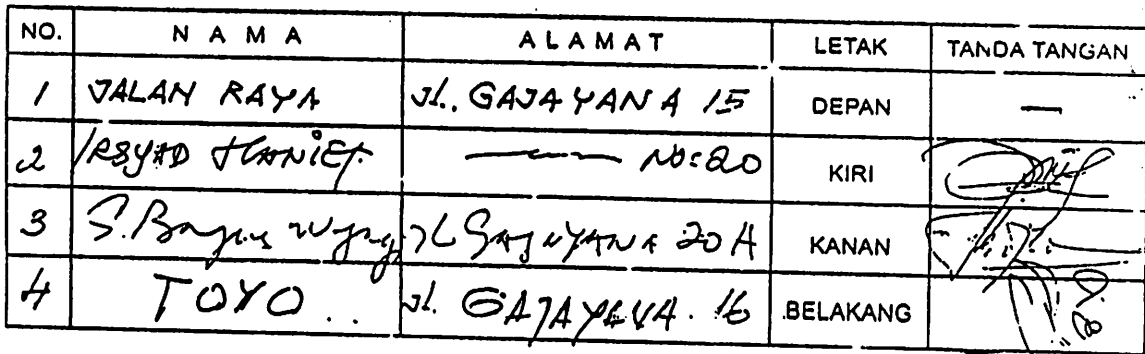 NO. N A M A A L A M A T LETAK TANDA TANGAN
1 JALAN RAYA Jl. GAJAYANA 15 DEPAN —
2 IRSYAD HANIEF —〃— NO: 20 KIRI
3 S. Bagus Jl GAJAYANA 20 A KANAN
4 TOYO .. Jl. GAJAYANA. 16 BELAKANG